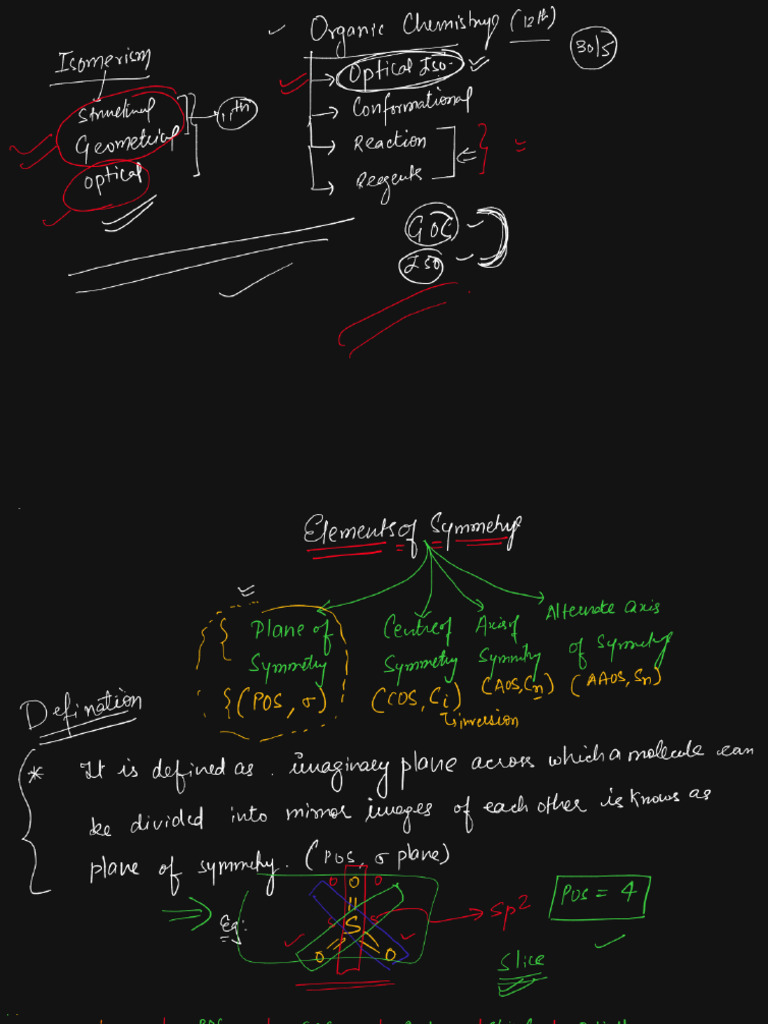 Organic Chemistry (12th)
30/5
Isomerism
Optical Iso.
Structural
Geometrical
11th
Optical
Conformational
Reaction
Reagents
GOC
ISO
Elements of Symmetry
Plane of
Symmetry
(POS, σ)
Centre of
Symmetry
(COS, Ci)
inversion
Axis of
Symmetry
(AOS, Cn)
Alternate axis
of Symmetry
(AAOS, Sn)
Defination
* It is defined as . imaginary plane across which a molecule can
be divided into mirror images of each other is knows as
plane of symmetry. (POS, σ plane)
Eg:
O O O
S S S
O O
sp2
POS = 4
Slice